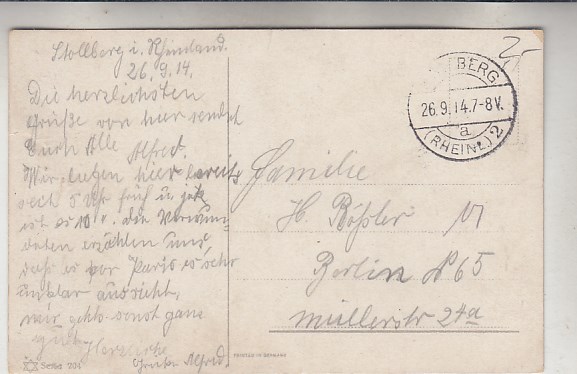 Stollberg i. Rheinland.
26.9.14.
Die herzlichsten
Grüße von hier sendet
Euch Alle
Alfred.
Wir liegen hier bereits
seit 5 Uhr früh u. jetzt
ist es 10 die Verwun-
deten erzählen uns,
daß es vor Paris es sehr
aussieht,
mir gehts sonst ganz
gut. Herzliche
Grüße Alfred.
Serie 204
PRINTED IN GERMANY
BERG
26.9.14.7-8V.
a
(RHEINL) 2
Familie
H. Rößler
Berlin N 65
Müllerstr 24a